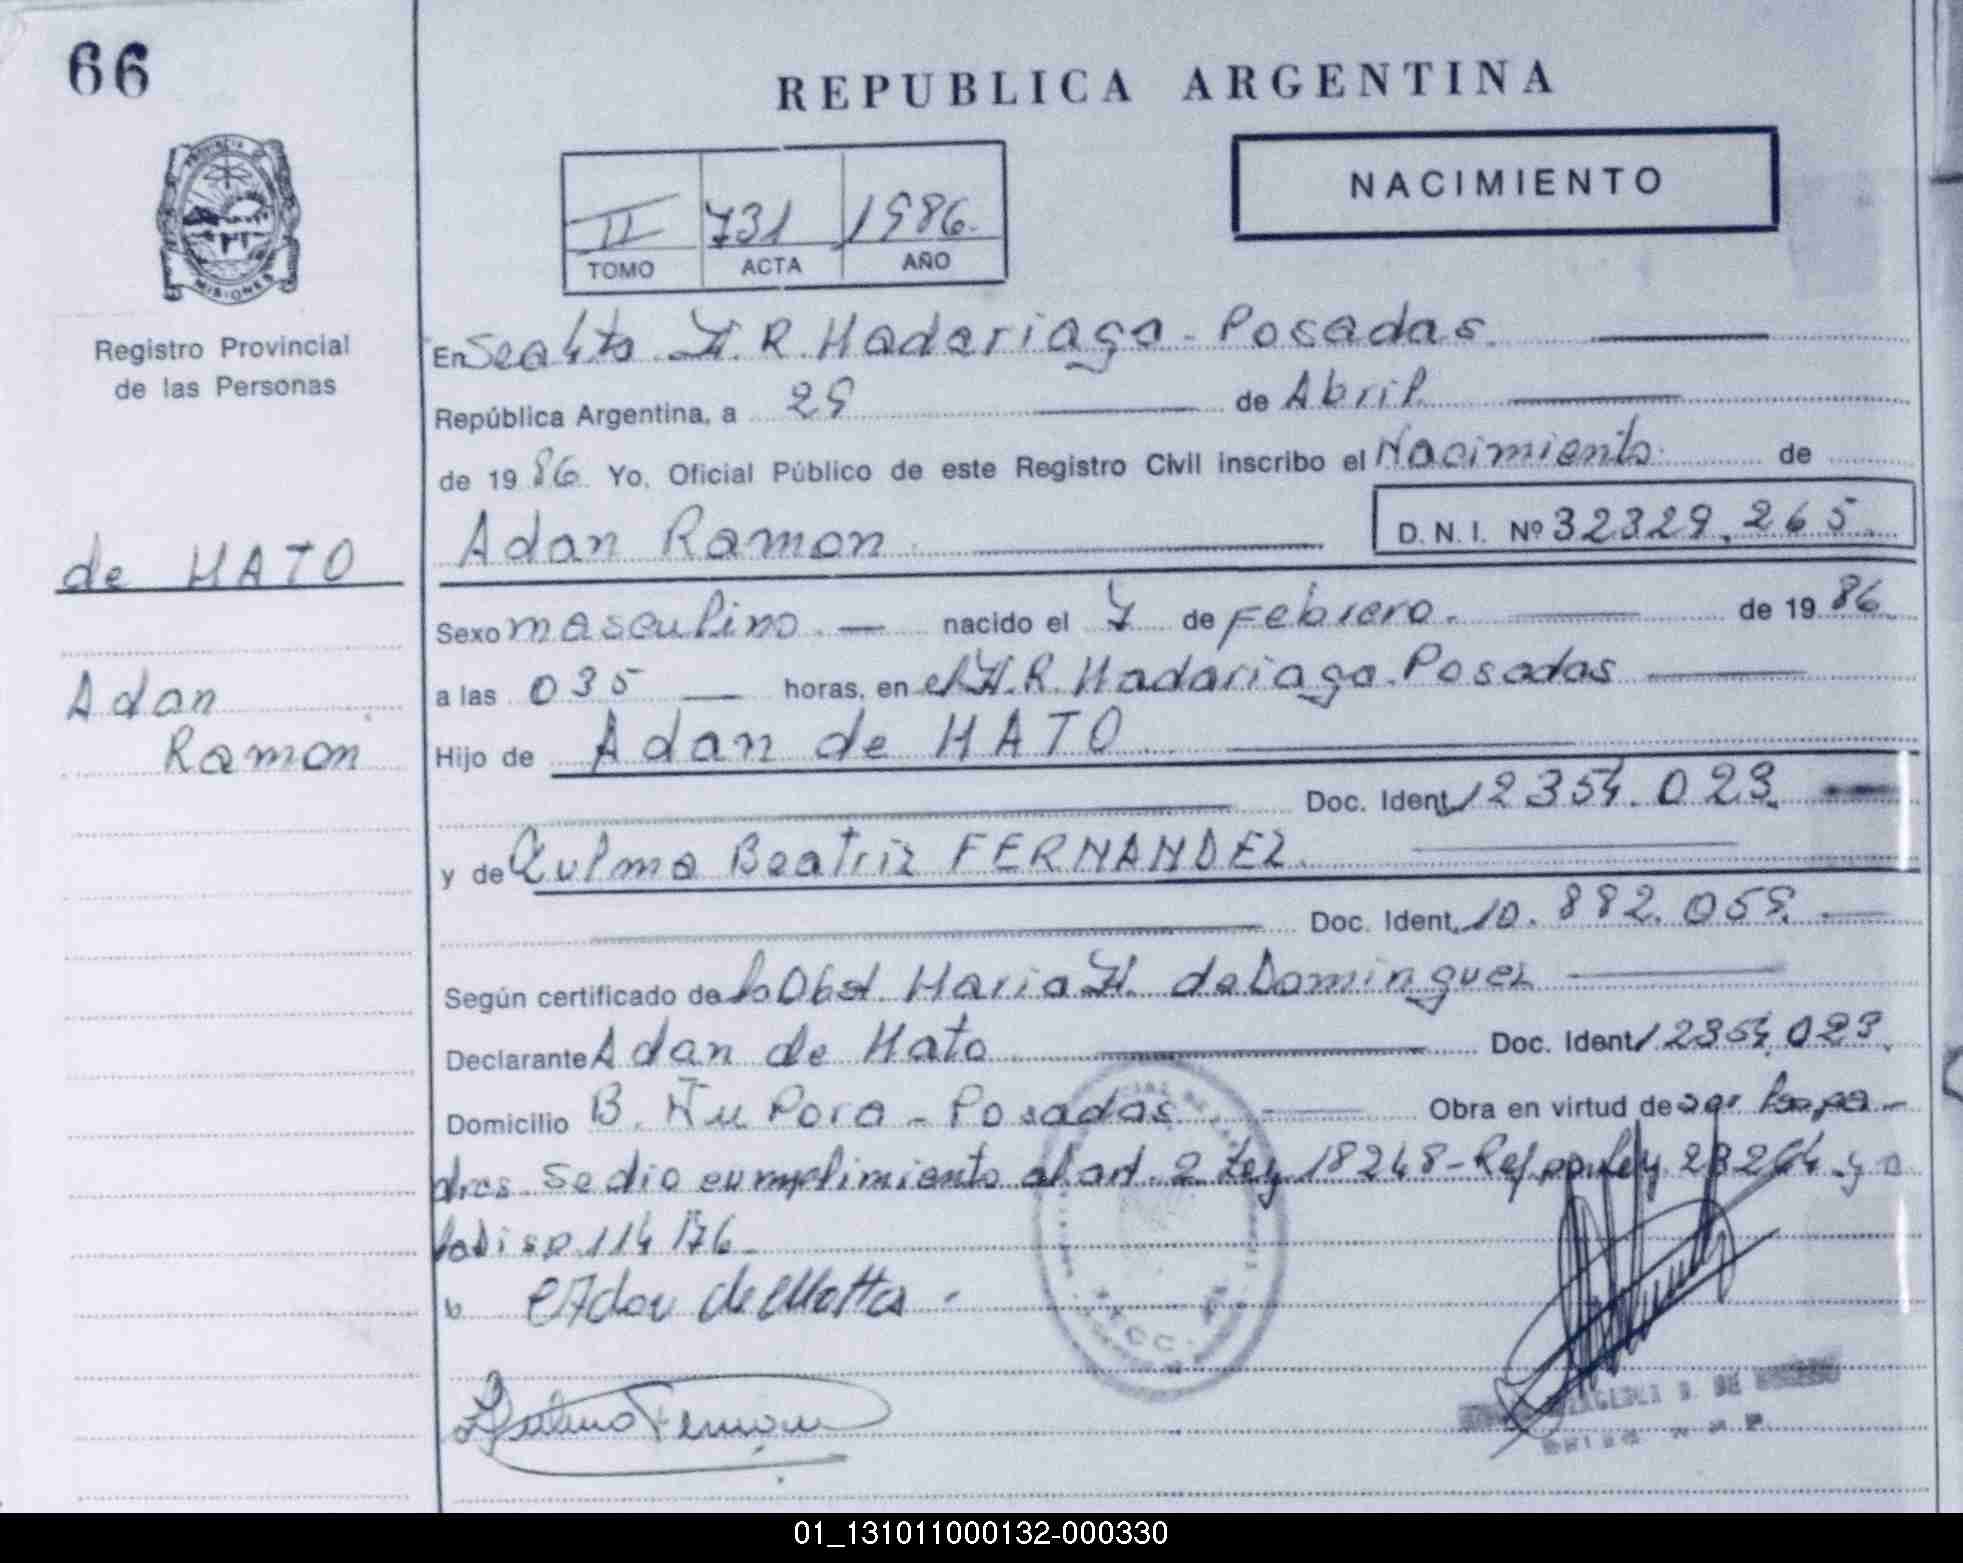 66
REPUBLICA ARGENTINA
NACIMIENTO
II 731 1986.
TOMO ACTA AÑO
PROVINCIA DE
MISIONES
Registro Provincial
de las Personas
En H. R. Madariaga - Posadas.
República Argentina, a 29 de Abril
de 1986. Yo, Oficial Público de este Registro Civil inscribo el Nacimiento de
Adan Ramon D. N. I. Nº 32329.265.
de MATO
Adan
Ramon
Sexo masculino. nacido el 7 de Febrero. de 1986.
a las 035 horas, en el H. R. Madariaga. Posadas
Hijo de Adan de MATO
Doc. Ident. 12354.023.
y de Zulma Beatriz FERNANDEZ.
Doc. Ident. 10.882.059.
Según certificado de la Obst. Maria H. de Dominguez
Declarante Adan de Mato Doc. Ident. 12354.023.
Domicilio B. Ñu Pora - Posadas Obra en virtud de ser los pa-
dres. Se dio cumplimiento al art. 2 Ley 18248 - Ref. por Ley 23264 y a
la Disp. 114/76.
Adan de Matto
Zulma Fernan
01_131011000132-000330